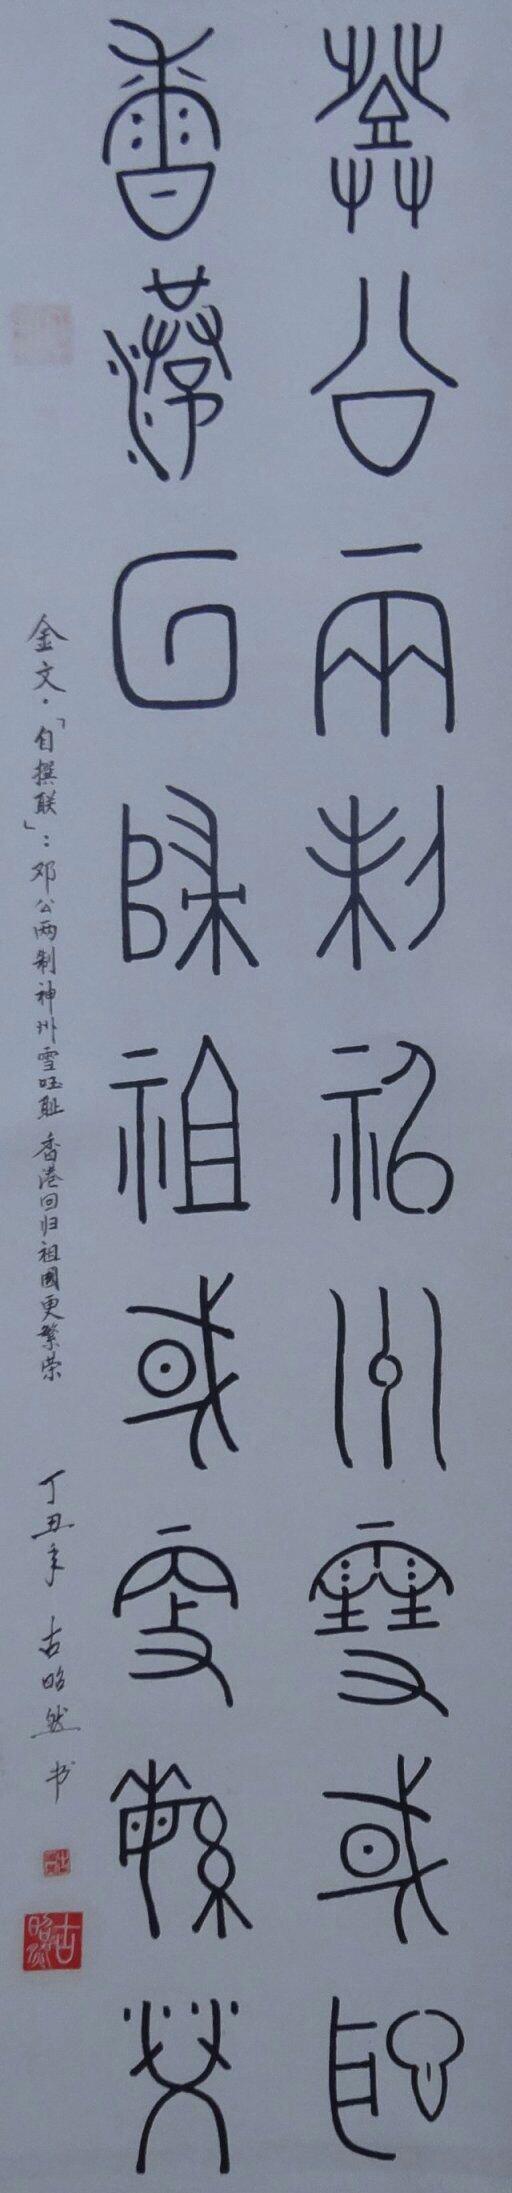 邓公两制神州雪或耻
香港回归祖或更繁荣
金文·「自撰联」：邓公两制神州雪国耻 香港回归祖國更繁荣 丁丑年 古昭然 书